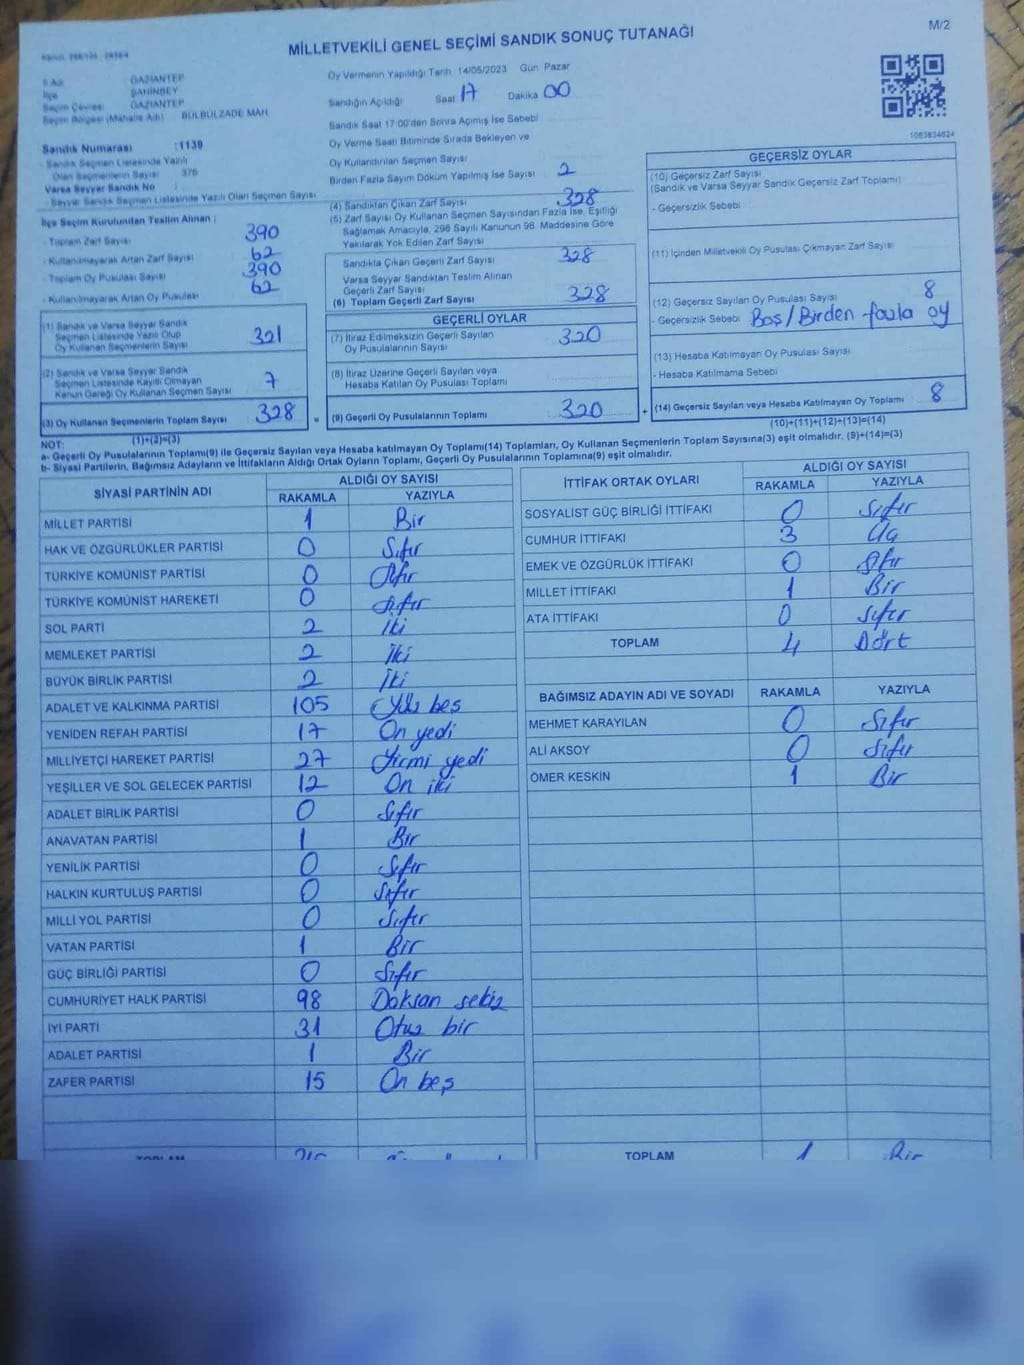 M/2
MİLLETVEKİLİ GENEL SEÇİMİ SANDIK SONUÇ TUTANAĞI
GAZİANTEP
İlçe ŞAHİNBEY
Seçim Çevresi GAZİANTEP
Seçim Bölgesi (Mahalle Adı) BÜLBÜLZADE MAH
Sandık Numarası :1139
- Sandık Seçmen Listesinde Yazılı
Olan Seçmenlerin Sayısı 376
Varsa Seyyar Sandık No :
- Seyyar Sandık Seçmen Listesinde Yazılı Olan Seçmen Sayısı
İlçe Seçim Kurulundan Teslim Alınan :
- Toplam Zarf Sayısı 390
- Kullanılmayarak Artan Zarf Sayısı 62
- Toplam Oy Pusulası Sayısı 390
- Kullanılmayarak Artan Oy Pusulası 62
(1) Sandık ve Varsa Seyyar Sandık
Seçmen Listesinde Yazılı Olup
Oy Kullanan Seçmenlerin Sayısı 321
(2) Sandık ve Varsa Seyyar Sandık
Seçmen Listesinde Kayıtlı Olmayan
Kanun Gereği Oy Kullanan Seçmen Sayısı 7
(3) Oy Kullanan Seçmenlerin Toplam Sayısı 328 =
(1)+(2)=(3)
Oy Vermenin Yapıldığı Tarih 14/05/2023 Gün Pazar
Sandığın Açıldığı Saat 17 Dakika 00
Sandık Saat 17:00'den Sonra Açılmış İse Sebebi
Oy Verme Saati Bitiminde Sırada Bekleyen ve
Oy Kullandırılan Seçmen Sayısı
Birden Fazla Sayım Döküm Yapılmış İse Sayısı 2
(4) Sandıktan Çıkan Zarf Sayısı 328
(5) Zarf Sayısı Oy Kullanan Seçmen Sayısından Fazla İse, Eşitliği
Sağlamak Amacıyla, 298 Sayılı Kanunun 98. Maddesine Göre
Yakılarak Yok Edilen Zarf Sayısı
Sandıkta Çıkan Geçerli Zarf Sayısı 328
Varsa Seyyar Sandıktan Teslim Alınan
Geçerli Zarf Sayısı
(6) Toplam Geçerli Zarf Sayısı 328
GEÇERLİ OYLAR
(7) İtiraz Edilmeksizin Geçerli Sayılan
Oy Pusulalarının Sayısı 320
(8) İtiraz Üzerine Geçerli Sayılan veya
Hesaba Katılan Oy Pusulası Toplamı
(9) Geçerli Oy Pusulalarının Toplamı 320 +
1063834624
GEÇERSİZ OYLAR
(10) Geçersiz Zarf Sayısı
(Sandık ve Varsa Seyyar Sandık Geçersiz Zarf Toplamı)
- Geçersizlik Sebebi
(11) İçinden Milletvekili Oy Pusulası Çıkmayan Zarf Sayısı
(12) Geçersiz Sayılan Oy Pusulası Sayısı 8
- Geçersizlik Sebebi Boş/Birden fazla oy
(13) Hesaba Katılmayan Oy Pusulası Sayısı
- Hesaba Katılmama Sebebi
(14) Geçersiz Sayılan veya Hesaba Katılmayan Oy Toplamı 8
(10)+(11)+(12)+(13)=(14)
NOT:
a- Geçerli Oy Pusulalarının Toplamı(9) ile Geçersiz Sayılan veya Hesaba katılmayan Oy Toplamı(14) Toplamları, Oy Kullanan Seçmenlerin Toplam Sayısına(3) eşit olmalıdır. (9)+(14)=(3)
b- Siyasi Partilerin, Bağımsız Adayların ve İttifakların Aldığı Ortak Oyların Toplamı, Geçerli Oy Pusulalarının Toplamına(9) eşit olmalıdır.
SİYASİ PARTİNİN ADI ALDIĞI OY SAYISI
RAKAMLA YAZIYLA
MİLLET PARTİSİ 1 Bir
HAK VE ÖZGÜRLÜKLER PARTİSİ 0 Sıfır
TÜRKİYE KOMÜNİST PARTİSİ 0 Sıfır
TÜRKİYE KOMÜNİST HAREKETİ 0 Sıfır
SOL PARTİ 2 İki
MEMLEKET PARTİSİ 2 İki
BÜYÜK BİRLİK PARTİSİ 2 İki
ADALET VE KALKINMA PARTİSİ 105 Yüz beş
YENİDEN REFAH PARTİSİ 17 On yedi
MİLLİYETÇİ HAREKET PARTİSİ 27 Yirmi yedi
YEŞİLLER VE SOL GELECEK PARTİSİ 12 On iki
ADALET BİRLİK PARTİSİ 0 Sıfır
ANAVATAN PARTİSİ 1 Bir
YENİLİK PARTİSİ 0 Sıfır
HALKIN KURTULUŞ PARTİSİ 0 Sıfır
MİLLİ YOL PARTİSİ 0 Sıfır
VATAN PARTİSİ 1 Bir
GÜÇ BİRLİĞİ PARTİSİ 0 Sıfır
CUMHURİYET HALK PARTİSİ 98 Doksan sekiz
İYİ PARTİ 31 Otuz bir
ADALET PARTİSİ 1 Bir
ZAFER PARTİSİ 15 On beş
TOPLAM
İTTİFAK ORTAK OYLARI ALDIĞI OY SAYISI
RAKAMLA YAZIYLA
SOSYALİST GÜÇ BİRLİĞİ İTTİFAKI 0 Sıfır
CUMHUR İTTİFAKI 3 Üç
EMEK VE ÖZGÜRLÜK İTTİFAKI 0 Sıfır
MİLLET İTTİFAKI 1 Bir
ATA İTTİFAKI 0 Sıfır
TOPLAM 4 Dört
BAĞIMSIZ ADAYIN ADI VE SOYADI RAKAMLA YAZIYLA
MEHMET KARAYILAN 0 Sıfır
ALİ AKSOY 0 Sıfır
ÖMER KESKİN 1 Bir
TOPLAM 1 Bir